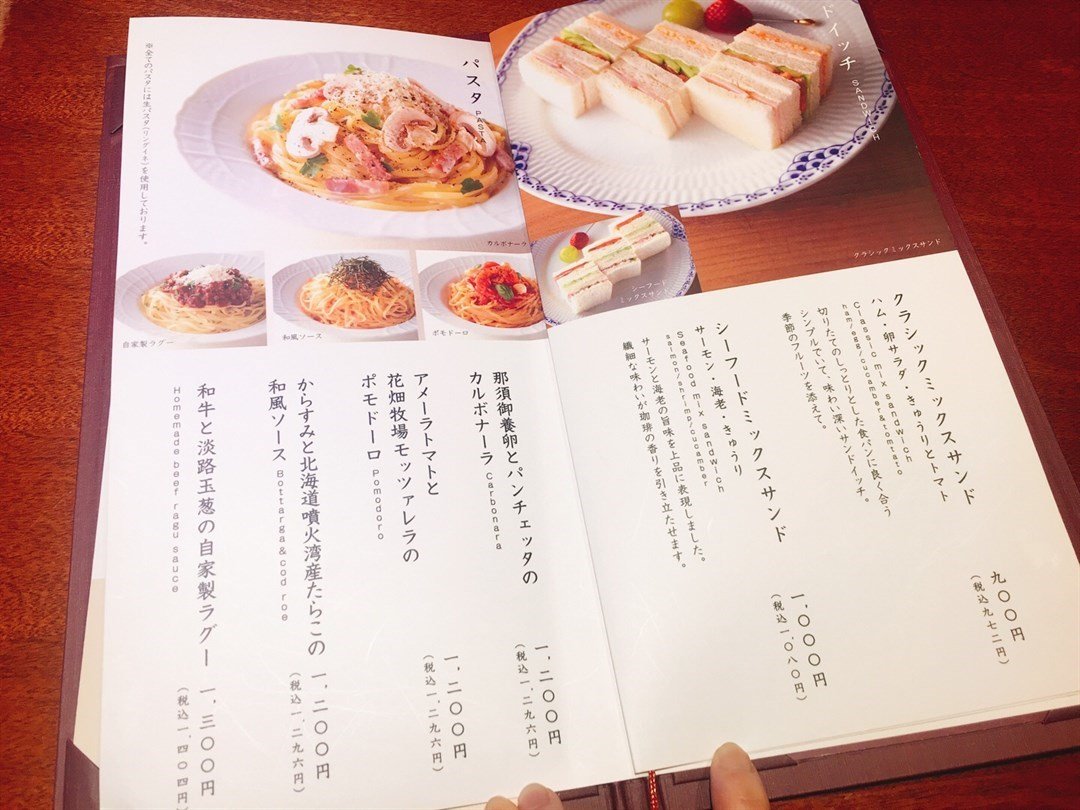 ドイッチ SANDWICH
クラシックミックスサンド
シーフード
ミックスサンド
クラシックミックスサンド
ハム・卵サラダ・きゅうりとトマト
Classic mix sandwich
ham/egg/cucamber&tomtato
切りたてのしっとりとした食パンに良く合う
シンプルでいて、味わい深いサンドイッチ。
季節のフルーツを添えて。
九〇〇円
(税込九七二円)
シーフードミックスサンド
サーモン・海老・きゅうり
Seafood mix sandwich
salmon/shrimp/cucamber
サーモンと海老の旨味を上品に表現しました。
繊細な味わいが珈琲の香りを引き立たせます。
一,〇〇〇円
(税込一,〇八〇円)
パスタ PASTA
※全てのパスタには生パスタ(リングイネ)を使用しております。
カルボナーラ
ポモドーロ
和風ソース
自家製ラグー
那須御養卵とパンチェッタの
カルボナーラ Carbonara
一,二〇〇円
(税込一,二九六円)
アメーラトマトと
花畑牧場モッツァレラの
ポモドーロ Pomodoro
一,二〇〇円
(税込一,二九六円)
からすみと北海道噴火湾産たらこの
和風ソース Bottarga&cod roe
一,二〇〇円
(税込一,二九六円)
和牛と淡路玉葱の自家製ラグー
Homemade beef ragu sauce
一,三〇〇円
(税込一,四〇四円)